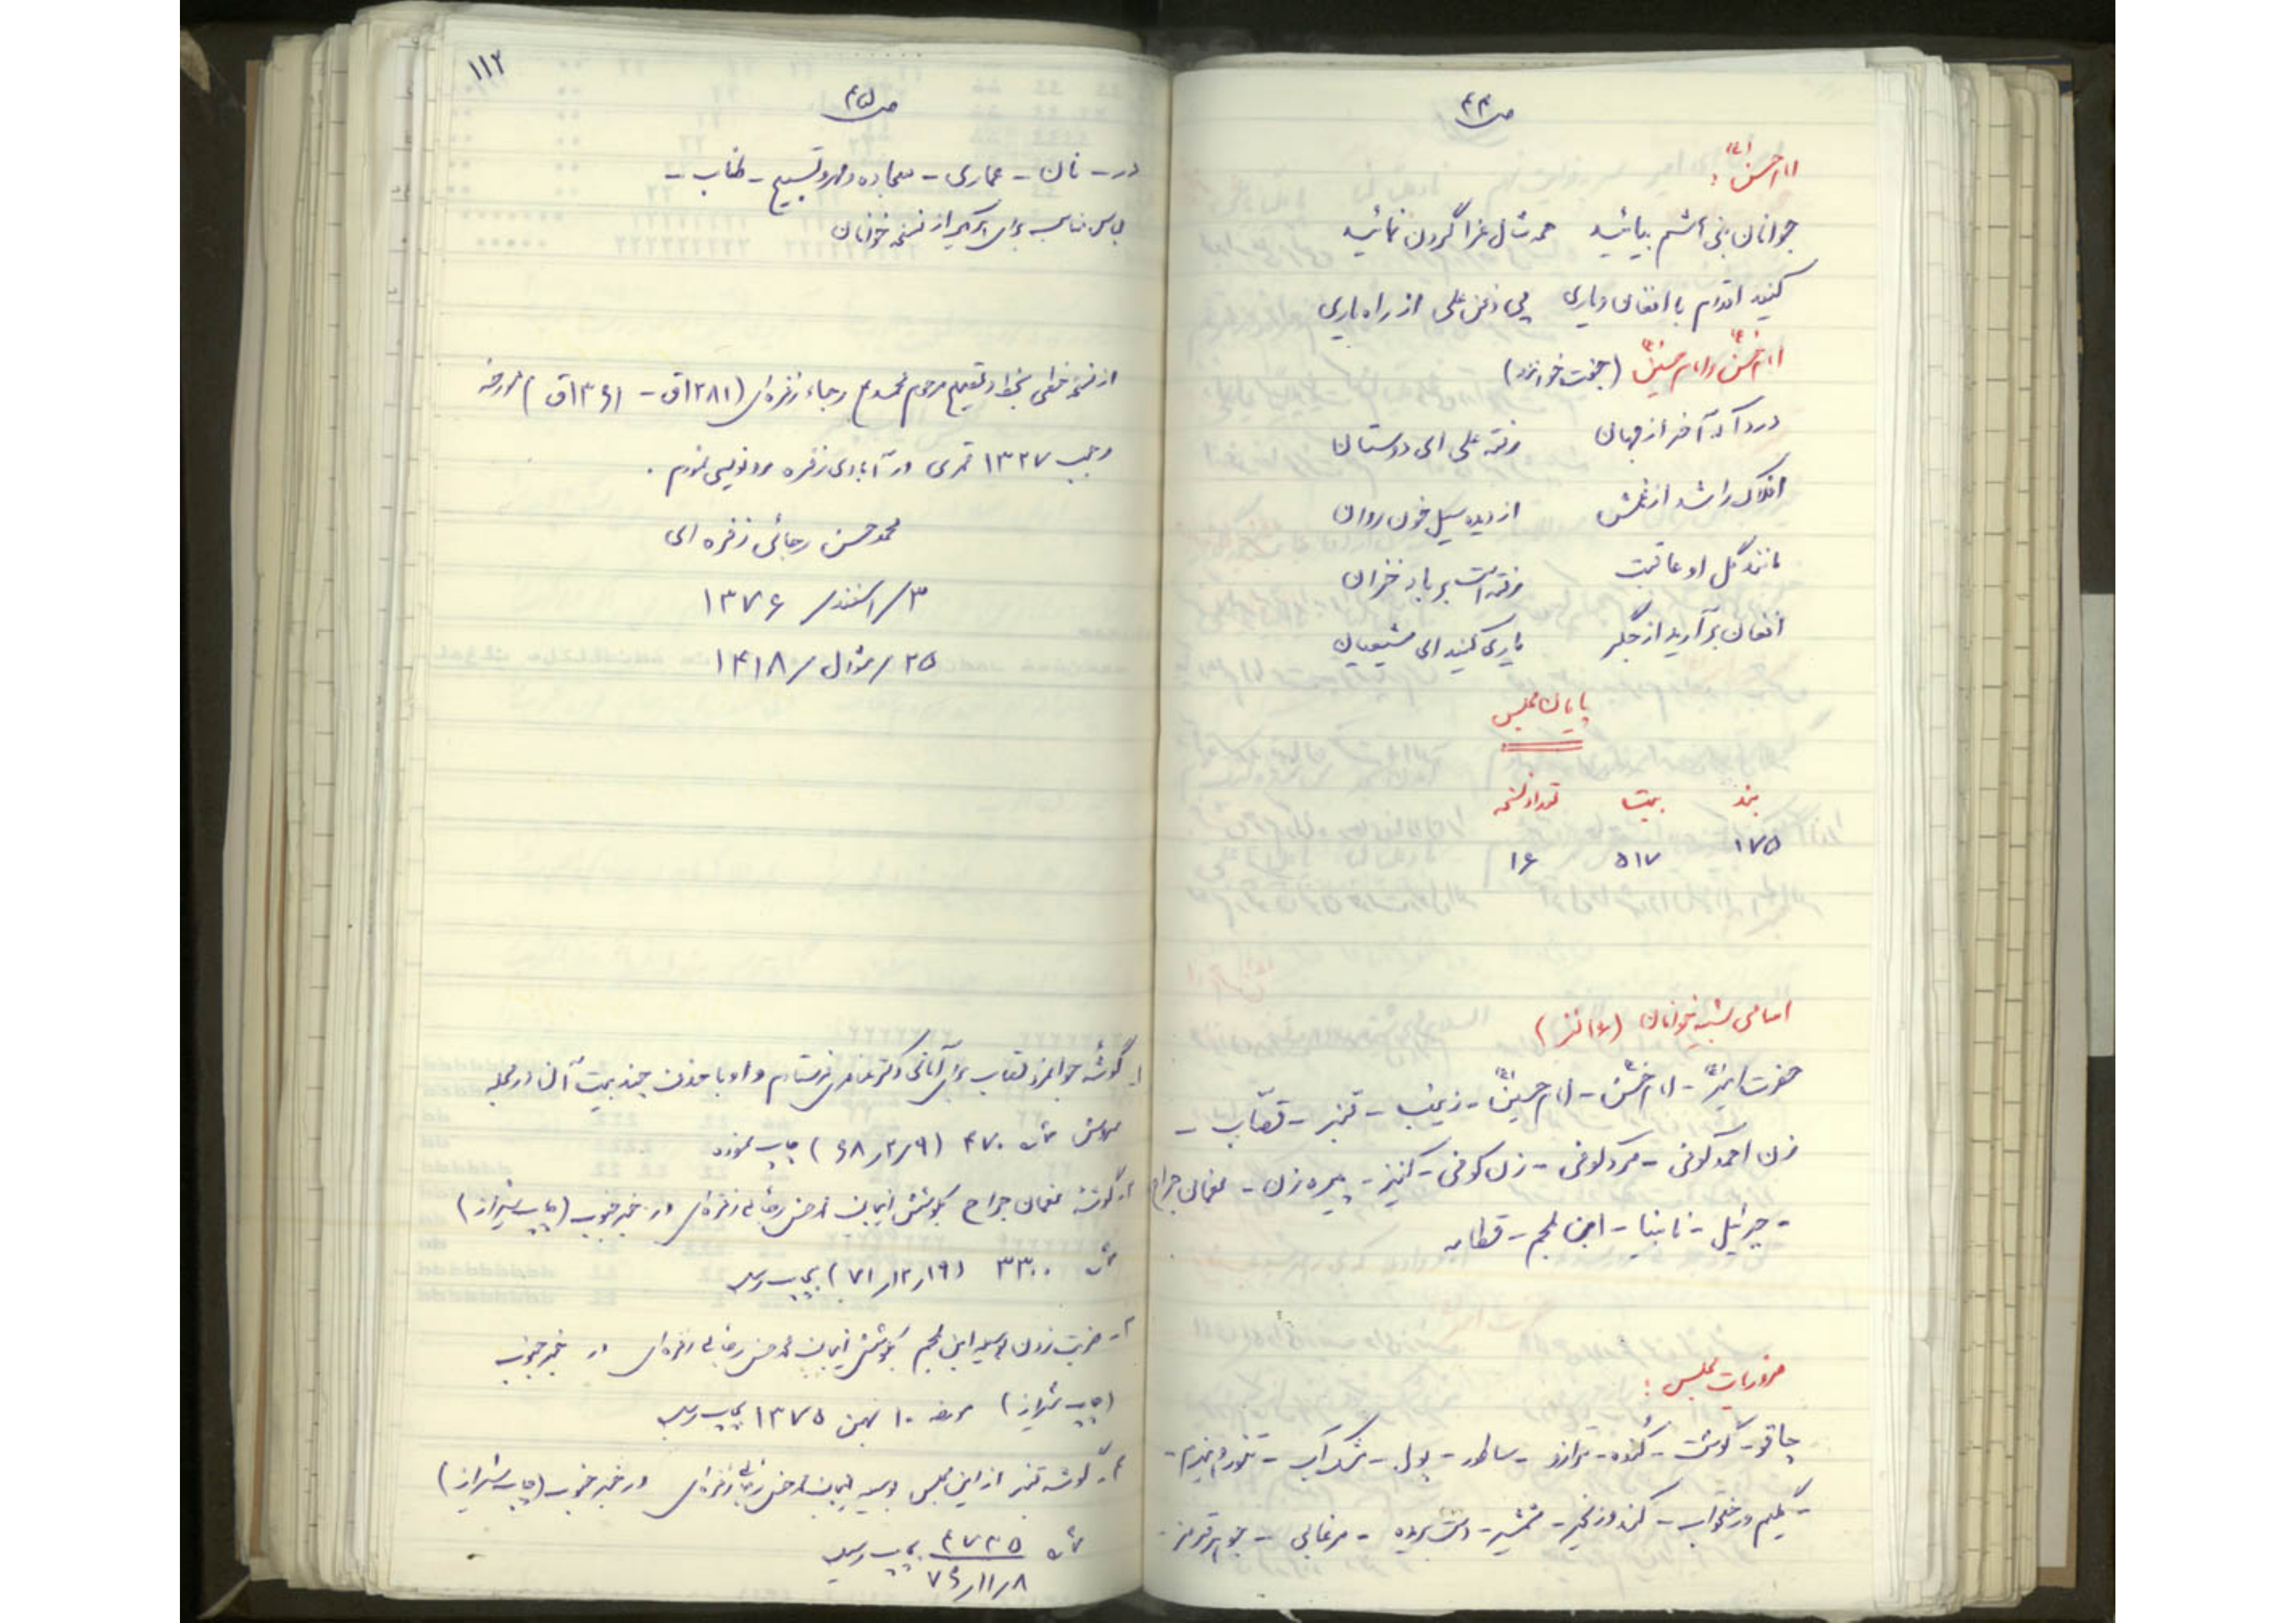 ص۴۴
امام حسن(ع):
جوانان بنی هاشم بیائید همه شال عزا گردن نمائید
کنید اقدام با افغان و یاری پی دفن علی از راه یاری
امام حسن(ع) و امام حسین(ع) (جفت خوانند)
دردا که آخر از جهان رفته علی ای دوستان
افلاک را شد از غمش از دیده سیل خون روان
مانند گل او عاقبت رفته است بر باد خزان
افغان برآرید از جگر یاری کنید ای شیعیان
پایان مجلس
بند بیت تعداد نسخه
۱۷۵ ۵۱۷ ۱۶
اسامی شبیه خوانان (۱۶ نفر)
حضرت امیر(ع) - امام حسن(ع) - امام حسین(ع) - زینب - قنبر - قصّاب -
زن احمد کوفی - مرد کوفی - زن کوفی - کنیز - پیره زن - نعمان جراح
- جبرئیل - نابینا - ابن ملجم - قطامه
ضروریات مجلس:
چاقو - گوشت - کُنده - ترازو - ساطور - پول - مشک آب - تنور و هیزم -
- گلیم و رختخواب - کمند و زنجیر - شمشیر - دست بریده - مرغابی - جوهر قرمز -
۱۱۲
ص۴۵
در - نان - عماری - سجاده و مهر و تسبیح - طناب -
لباس مناسب برای هر یک از نسخه خوانان
از نسخه خطی بخط و تصحیح مرحوم محمد رجاء زفره‌ای (۱۲۸۱ق - ۱۳۶۱ق) مورخه
رجب ۱۳۲۷ قمری در آبادی زفره رونویسی نمودم.
محمدحسن رجائی زفره ای
۳/اسفند/۱۳۷۶
۲۵/شوال/۱۴۱۸
۱- گوشه جوانمرد قصاب برای آقای دکتر فرستادم و او با حذف چند بیت آن در مجله
سروش ش ۴۷۰ (۶۸/۲/۹) چاپ نموده
۲- گوشه نعمان جراح بکوشش اینجانب محمدحسن رجائی زفره‌ای در خبر جنوب (چاپ شیراز)
ش ۳۳۰۰ (۷۱/۱۲/۱۹) بچاپ رسید
۳- ضربت زدن بوسیله ابن ملجم بکوشش اینجانب محمدحسن رجائی زفره‌ای در خبر جنوب
(چاپ شیراز) مورخه ۱۰ بهمن ۱۳۷۵ بچاپ رسید
۴- گوشه قنبر از این مجلس بوسیله اینجانب محمدحسن رجائی زفره‌ای در خبر جنوب (چاپ شیراز)
ش ۴۷۳۵ بچاپ رسید
۷۶/۱۱/۸